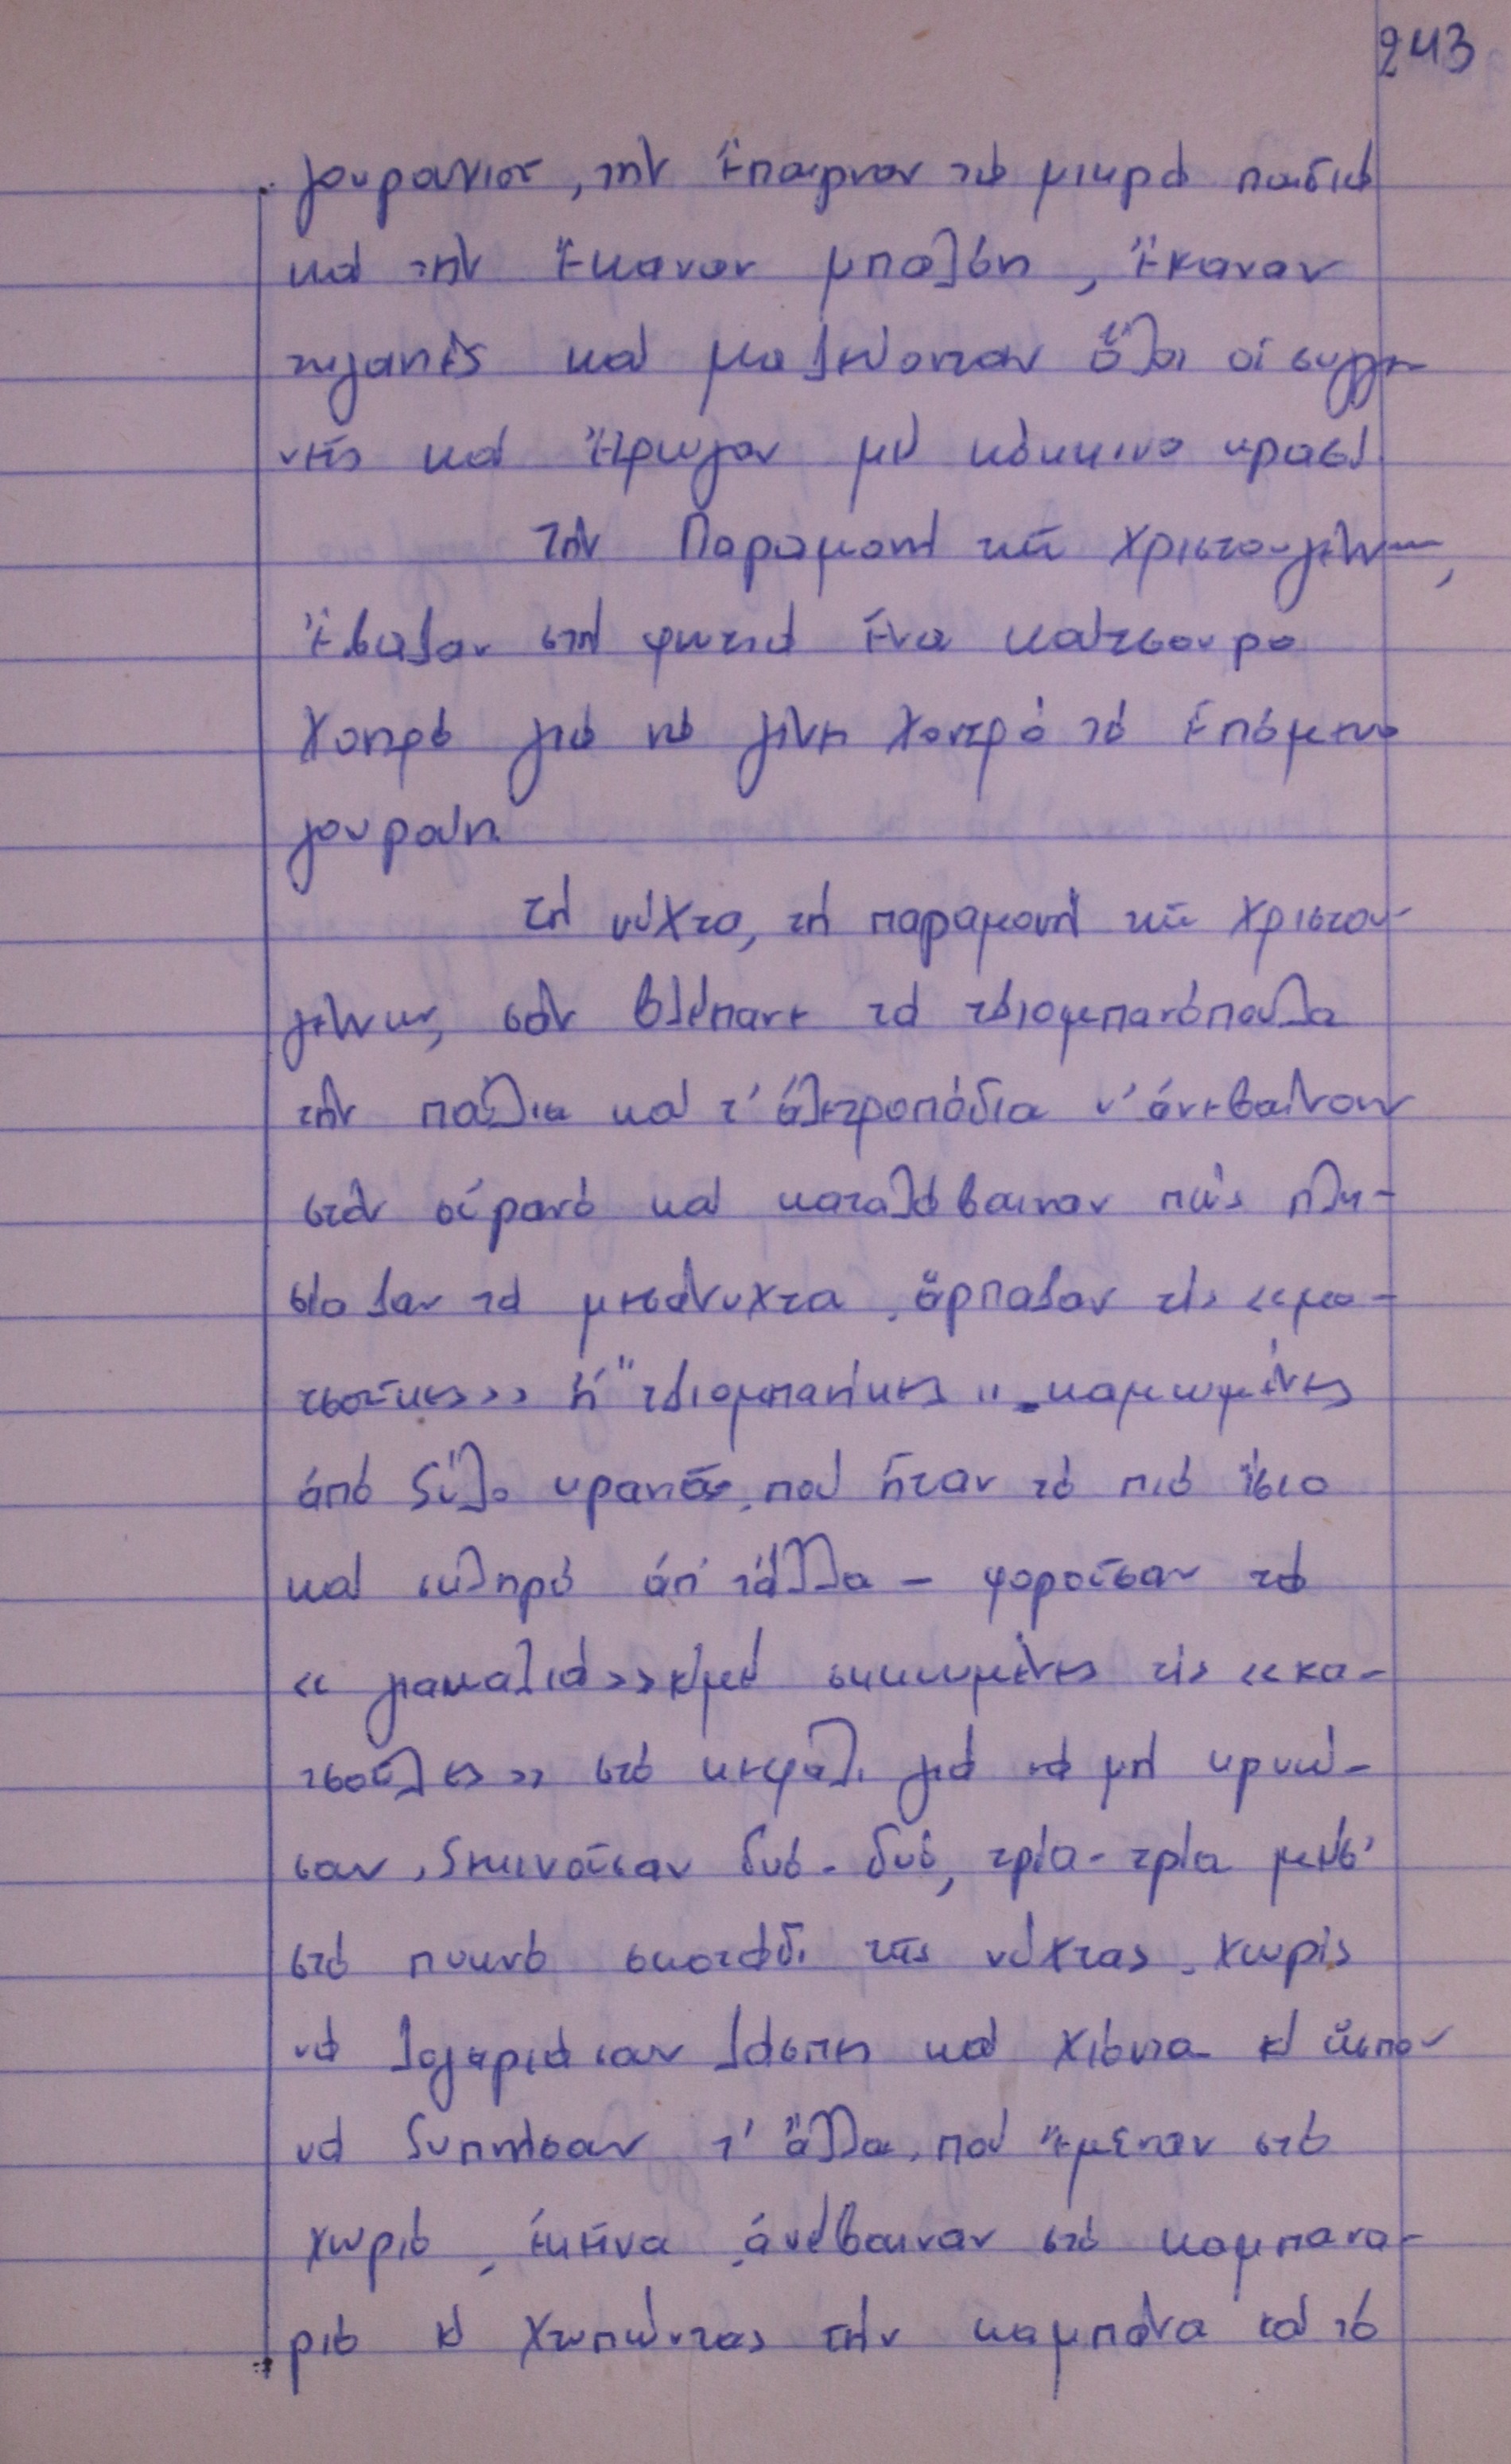 243
γουρουνιοῦ, τήν ἔπαιρναν τά μικρά παιδιά
καί τήν ἔκαναν μπάλλα, ἔκαναν
τηγανιές καί μαζεύονταν ὅλοι οἱ συγγε-
νεῖς καί ἔτρωγαν μέ κόκκινο κρασί
Τήν Παραμονή τῶν Χριστουγέννων,
ἔβαζαν στή φωτιά ἕνα κούτσουρο
χοντρό γιά νά γίνη χοντρό τό ἑπόμενο
γουρούνι.
Τή νύχτα, τή παραμονή τῶν Χριστου-
γέννων, σάν βλέπανε τά τσιομπανόπουλα
τήν πούλια καί τ' ἀλετροπόδια ν' ἀνεβαίνουν
στόν οὐρανό καί καταλάβαιναν πώς πλη-
σίαζαν τά μεσάνυχτα, ἅρπαζαν τίς «μα-
τσοῦκες» ἤ "τσιομπανίκες" - καμωμένες
ἀπό ξύλο κρανιᾶς, πού ἦταν τό πιό ἴσιο
καί σκληρό ἀπ' τἄλλα - φοροῦσαν τά
« γιακαλιά» κ' μέ σηκωμένες τίς «κα-
τσοῦλες» στό κεφάλι γιά νά μή κρυώ-
σαν, ξεκινοῦσαν δυό-δυό, τρία-τρία μέσ'
στό πυκνό σκοτάδι τῆς νύχτας, χωρίς
νά λογαριάσαν λάσπες καί χιόνια κι ὥσπου
νά ξυπνήσαν τ' ἄλλα, πού ἔμεναν στό
χωριό, ἐκεῖνα ἀνέβαιναν στό καμπανα-
ριό κι χτυπώντας τήν καμπάνα καί τό